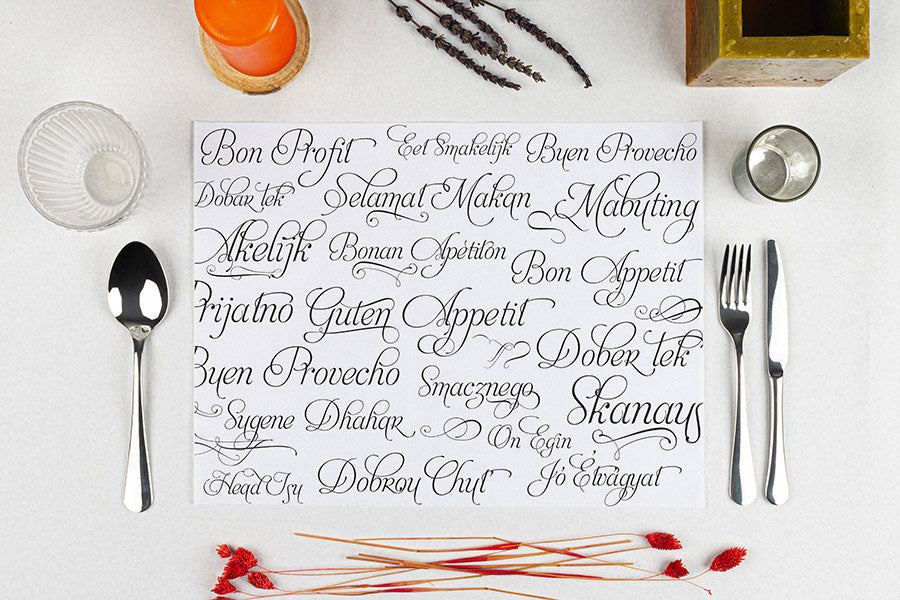 Bon Profit Eet Smakelijk Buen Provecho
Dobar tek Selamat Makan Mabuting
Akelijk Bonan Apetiton Bon Appetit
Prijatno Guten Appetit
Dober tek
Buen Provecho Smacznego Skanaus
Sygene Dhahar On Egin
Head Isu Dobrou Chut' Jó Étvágyat